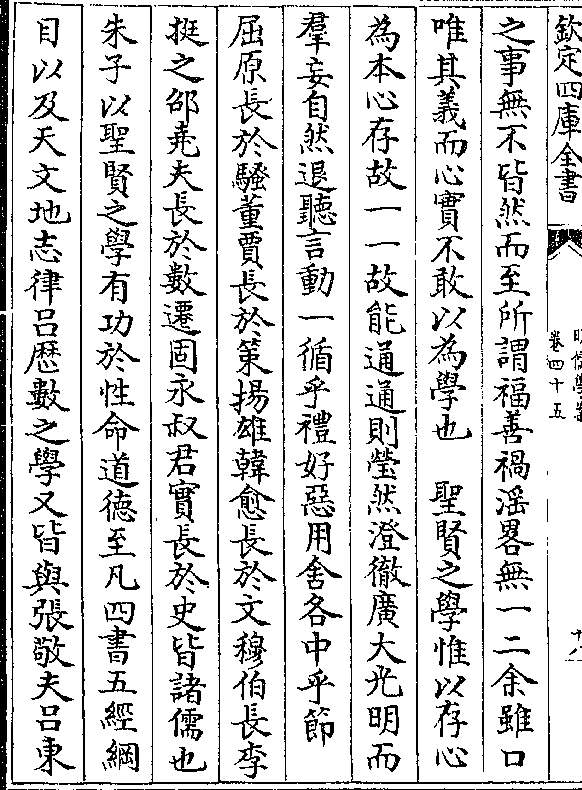 欽定四庫全書
卷四十五
之事無不皆然而至所謂福善禍淫畧無一二余雖口
唯其義而心實不敢以為學也　聖賢之學惟以存心
為本心存故一一故能通通則瑩然澄徹廣大光明而
羣妄自然退聽言動一循乎禮好惡用舍各中乎節
屈原長於騷董賈長於策揚雄韓愈長於文穆伯長李
挺之邵堯夫長於數遷固永叔君實長於史皆諸儒也
朱子以聖賢之學有功於性命道德至凡四書五經綱
目以及天文地志律呂歷數之學又皆與張敬夫呂東